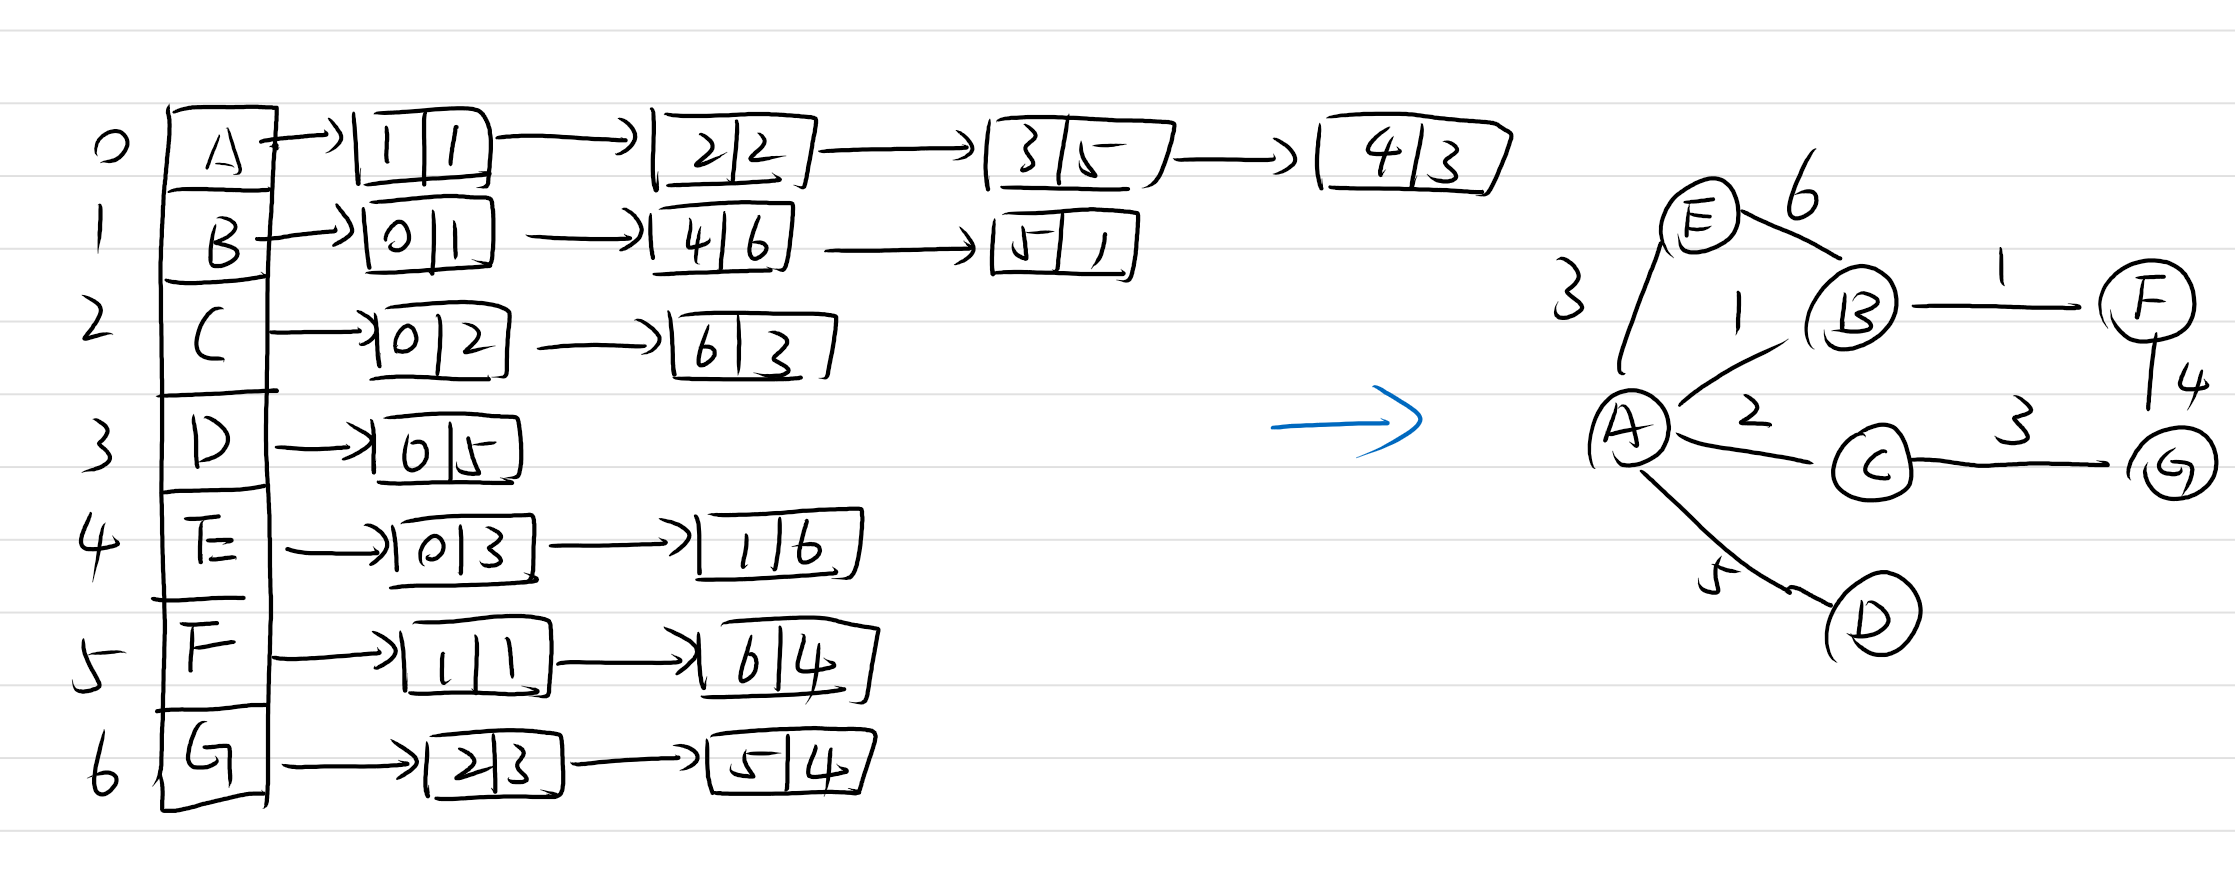 0 A 1 1 2 2 3 5 4 3
1 B 0 1 4 6 5 1
2 C 0 2 6 3
3 D 0 5
4 E 0 3 1 6
5 F 1 1 6 4
6 G 2 3 5 4
E 6
3 1 B 1 F
4
A 2 C 3 G
5 D